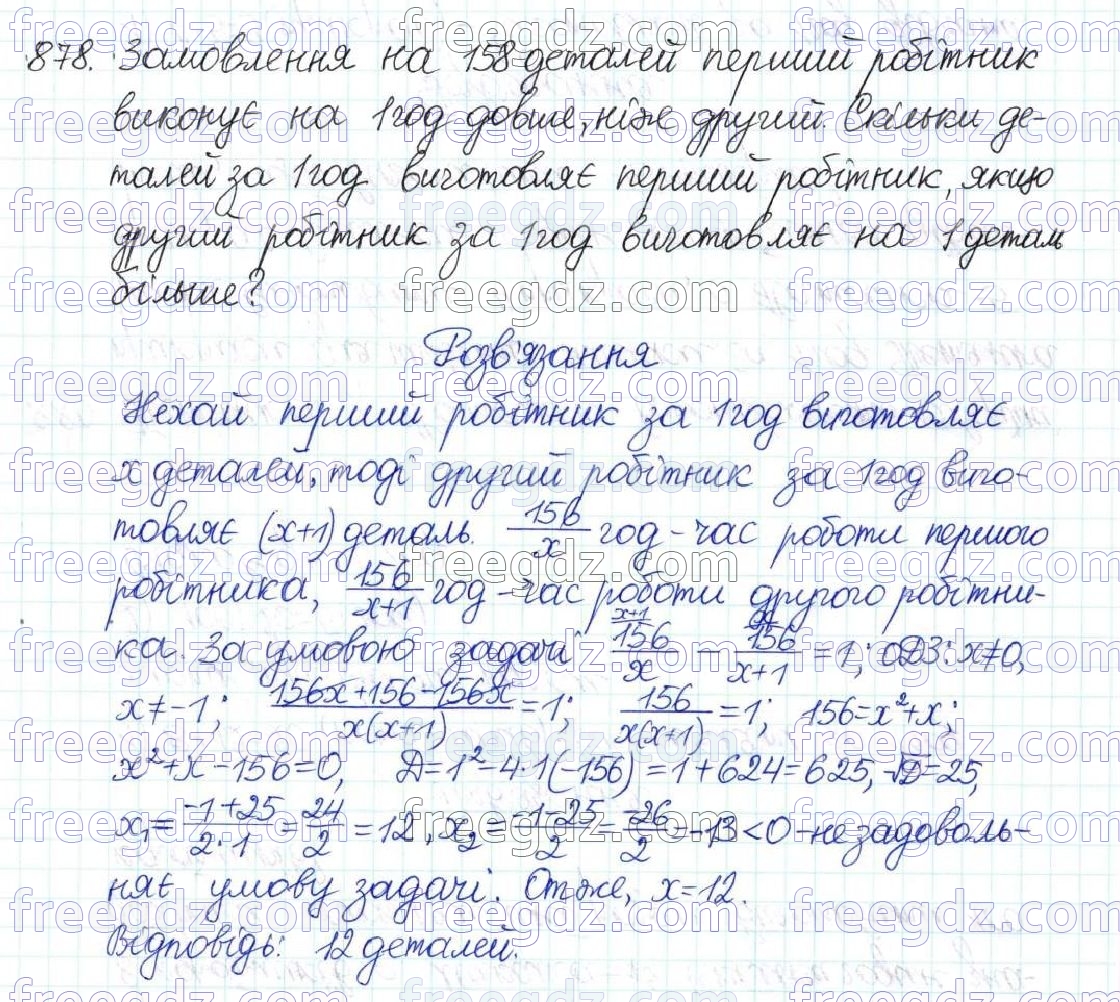 878. Замовлення на 158 деталей перший робітник
виконує на 1 год довше, ніж другий. Скільки де-
талей за 1 год виготовляє перший робітник, якщо
другий робітник за 1 год виготовляє на 1 деталь
більше?
Розв'язання
Нехай перший робітник за 1 год виготовляє
x деталей, тоді другий робітник за 1 год виго-
товляє (x+1) деталь. 156/x год - час роботи першого
робітника, 156/(x+1) год - час роботи другого робітни-
ка. За умовою задачі 156/x (x+1) - 156/(x+1) (x) = 1; ОДЗ: x≠0,
x≠-1; (156x+156-156x)/(x(x+1)) = 1; 156/(x(x+1)) = 1; 156=x²+x;
x²+x-156=0, D=1²-4·1(-156)=1+624=625, √D=25,
x₁=(-1+25)/(2·1)=24/2=12, x₂=(-1-25)/2=-26/2=-13<0 - не задоволь-
няє умову задачі. Отже, x=12.
Відповідь: 12 деталей.
freegdz.com